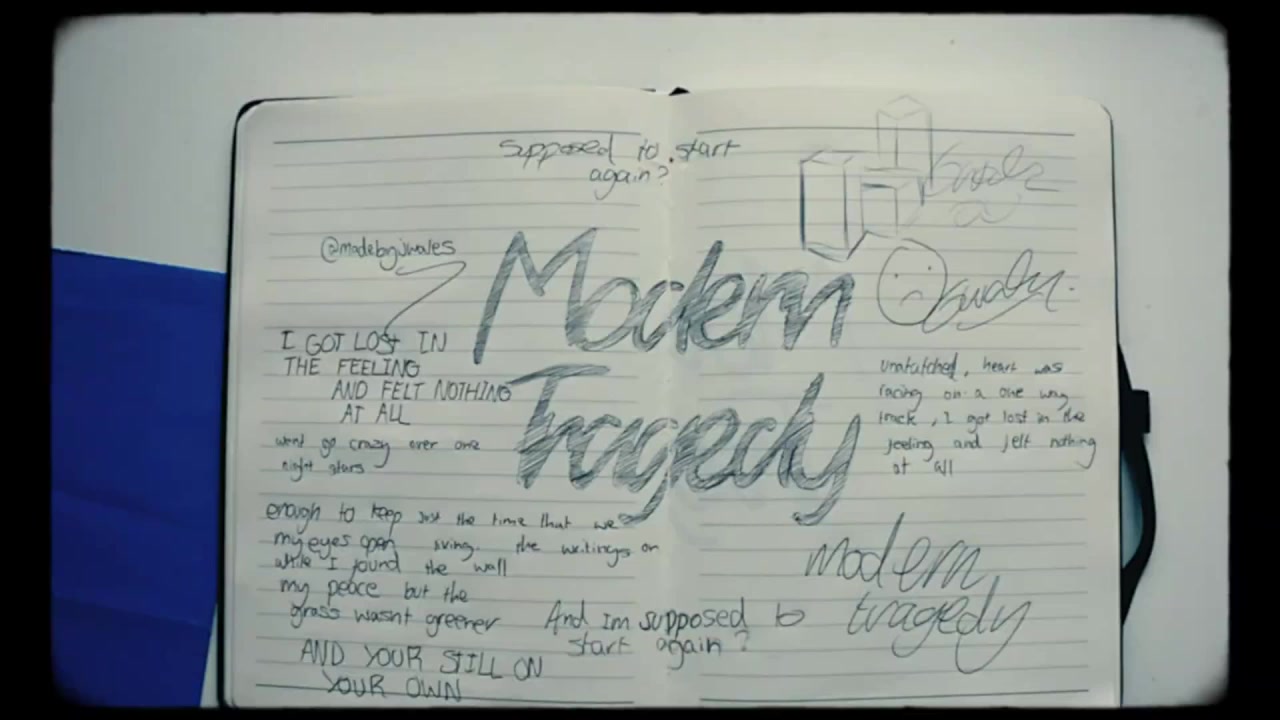 supposed to start
again?
@madebyjwales
Modern
Tragedy
I GOT LOST IN
THE FEELING
AND FELT NOTHING
AT ALL
went go crazy over one
night stars
enough to keep
my eyes open
while I found
my peace but the
grass wasnt greener
just the time that we
living. the writings on
the wall
AND YOUR STILL ON
YOUR OWN
And Im supposed to
start again?
heart was
racing on a one way
track, I got lost in the
feeling and felt nothing
at all
modern
tragedy